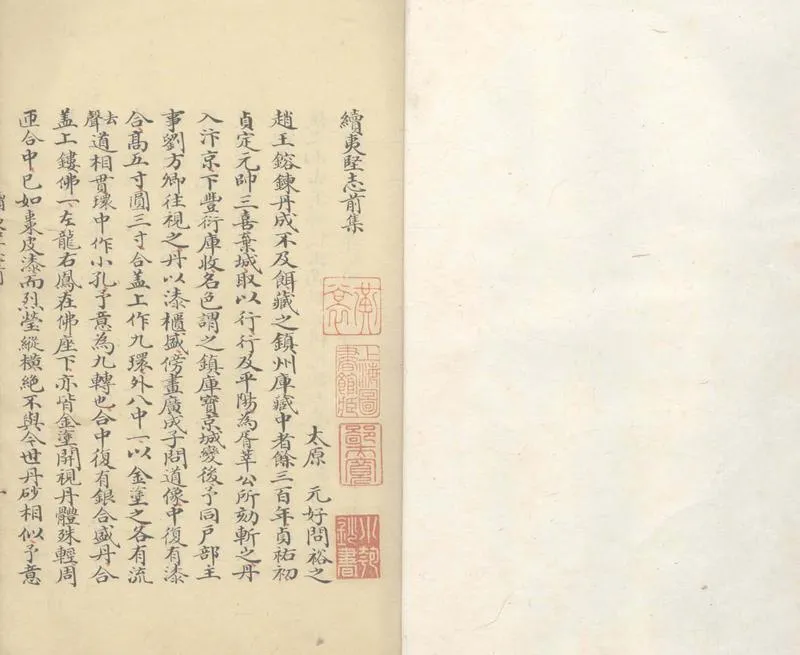 續夷堅志前集
太原 元好問裕之
趙王鎔鍊丹成不及餌藏之鎮州庫藏中者餘三百年貞祐初
貞定元帥三喜棄城取以行行及平陽為胥莘公所劾斬之丹
入汴京下豐衍庫收名色謂之鎮庫寶京城變後予同戶部主
事劉方卿往視之丹以漆櫃盛傍畫廣成子問道像中復有漆
合高五寸圓三寸合蓋上作九環外八中一以金塗之各有流
去聲道相貫環中作小孔予意為九轉也合中復有銀合盛丹合
蓋上鏤佛一左龍右鳳在佛座下亦皆金塗開視丹體殊輕周
匝合中已如棗皮漆而烈瑩縱橫絕不與今世丹砂相似予意
上海圖
書館藏